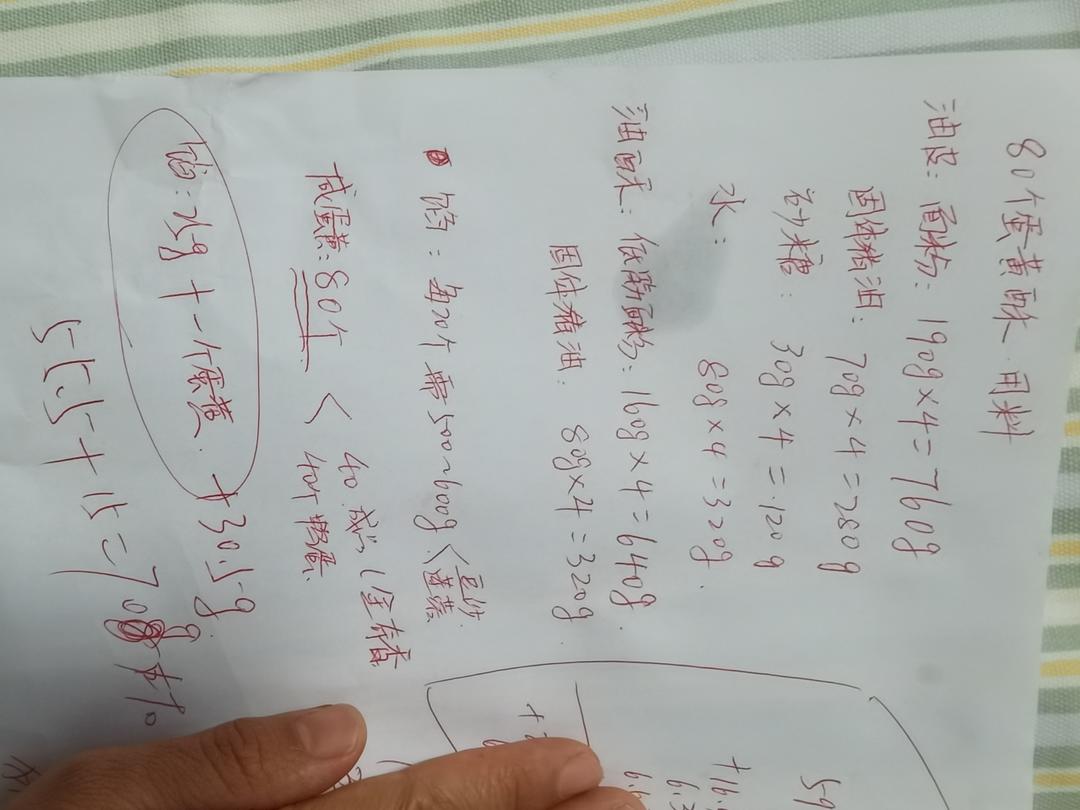 80个蛋黄酥用料
油皮: 面粉: 190g×4=760g
固体猪油: 70g×4=280g
砂糖: 30g×4=120g
水: 80g×4=320g.
油酥: 低筋面粉: 160g×4=640g.
固体猪油: 80g×4=320g.
馅: 每20个需500~600g.< 豆沙 莲蓉
咸蛋黄: 80个 < 40.咸 40个鸭蛋
馅: 25g+一个蛋黄. +30.5g
55.5+15=70
+16.
59